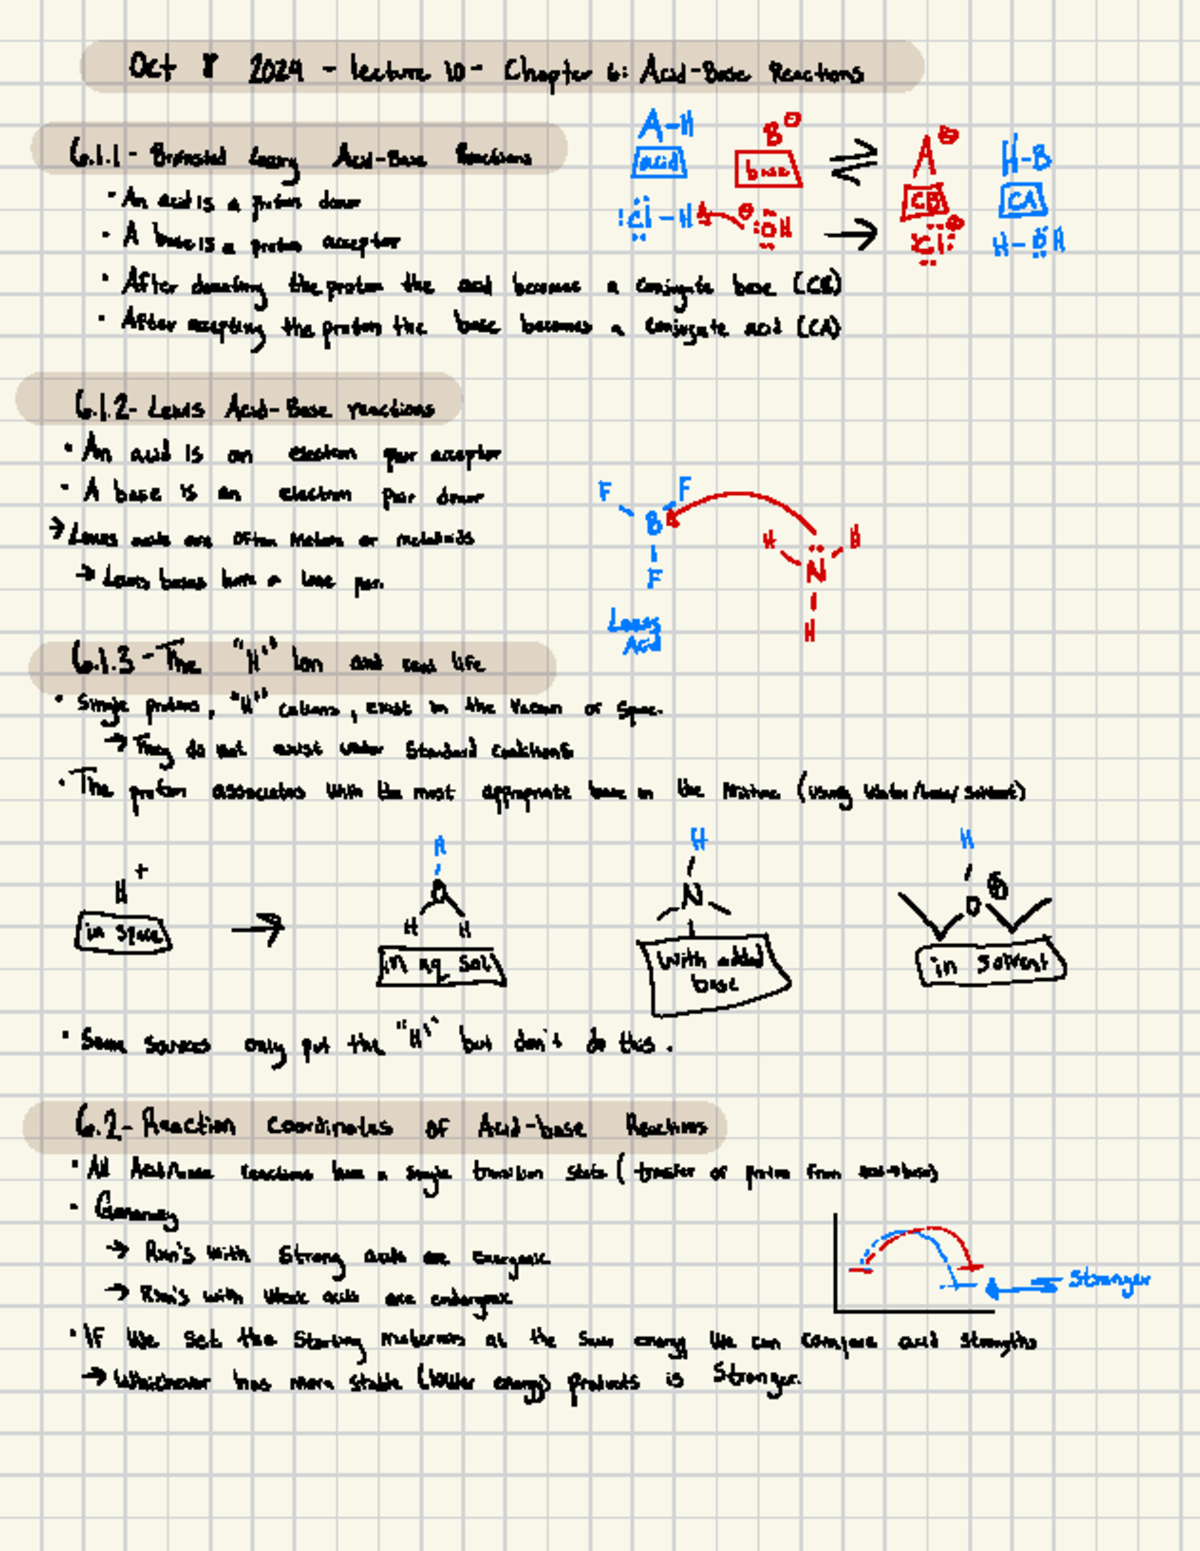 Oct 8 2024 - lecture 10 - Chapter 6: Acid-Base Reactions
6.1.1 - Brønsted Lowry Acid-Base Reactions
• An acid is a proton donor
• A base is a proton acceptor
• After donating the proton the acid becomes a conjugate base (CB)
• After accepting the proton the base becomes a conjugate acid (CA)
A-H B⊖ ⇌ A⊖ H-B
acid base CB CA
:Cl-H ⊖:OH → :Cl:⊖ H-OH
6.1.2 - Lewis Acid-Base reactions
• An acid is an electron pair acceptor
• A base is an electron pair donor
→ Lewis acids are often metals or metalloids
→ Lewis bases have a lone pair
F F
B
F
H H
N
H
Lewis
Acid
6.1.3 - The "H⁺" Ion and real life
• Single protons, "H⁺" cations, exist in the vacuum of space.
→ They do not exist under standard conditions
• The proton associates with the most appropriate base in the mixture (usually water/base/solvent)
H⁺ → H H H
O N O ⊕
H H
in space in aq sol with added base in solvent
• Some sources only put the "H⁺" but don't do this.
6.2 - Reaction coordinates of Acid-base Reactions
• All Acid/base reactions have a single transition state (transfer of proton from acid→base)
• Generally
→ Rxn's with strong acids are exergonic
→ Rxn's with weak acids are endergonic
Stronger
• If we set the starting materials at the same energy we can compare acid strengths
→ Whichever has more stable (lower energy) products is stronger.